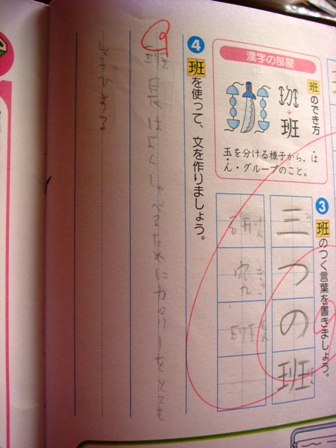 漢字の部屋
班のでき方
班
玉を分ける様子から、は
ん・グループのこと。
3 班のつく言葉を書きましょう。
三つの班
研究
4 班を使って、文を作りましょう。
班長はよくしゃべるためにカロリーをとても